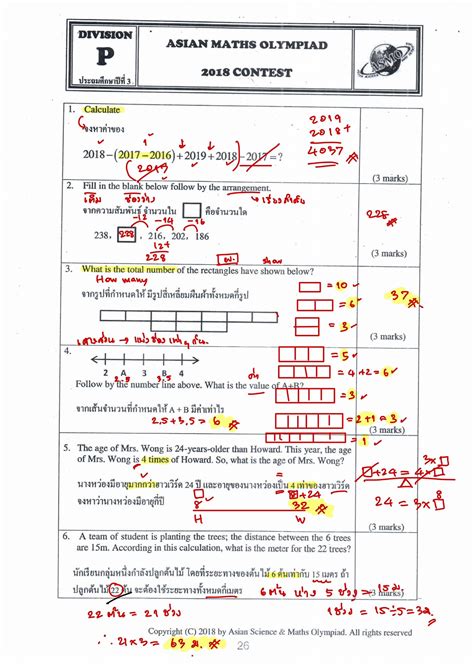 DIVISION
P
ประถมศึกษาปีที่ 3
ASIAN MATHS OLYMPIAD
2018 CONTEST
1. Calculate
จงหาค่าของ
2018-(2017-2016)+2019+2018-2017=?
2019
2018+
4037
(3 marks)
2. Fill in the blank below follow by the arrangement.
จากความสัมพันธ์ จำนวนใน คือจำนวนใด
-12 -14 -16
238, 228, 216, 202, 186
12+
228
228
(3 marks)
3. What is the total number of the rectangles have shown below?
How many
show
จากรูปที่กำหนดให้ มีรูปสี่เหลี่ยมผืนผ้าทั้งหมดกี่รูป
= 10
= 6
= 3
37
(3 marks)
4.
= 5
= 4+2 = 6
= 3
= 2+1 = 3
= 1
2 A 3 B 4
2.5 3.5
Follow by the number line above. What is the value of A+B?
จากเส้นจำนวนที่กำหนดให้ A + B มีค่าเท่าไร
2.5+3.5 = 6
(3 marks)
5. The age of Mrs. Wong is 24-years-older than Howard. This year, the age
of Mrs. Wong is 4 times of Howard. So, what is the age of Mrs. Wong?
นางหว่องมีอายุมากกว่าฮาวเวิร์ด 24 ปี และอายุของนางหว่องเป็น 4 เท่าของฮาวเวิร์ด
จงหาว่านางหว่องมีอายุกี่ปี
8 8+24
8 32
H W
+24 = 4×
24 = 3×8
(3 marks)
6. A team of student is planting the trees; the distance between the 6 trees
are 15m. According to this calculation, what is the meter for the 22 trees?
นักเรียนกลุ่มหนึ่งกำลังปลูกต้นไม้ โดยที่ระยะทางของต้นไม้ 6 ต้นเท่ากับ 15 เมตร ถ้า
ปลูกต้นไม้ 22 ต้น จะต้องใช้ระยะทางทั้งหมดกี่เมตร
(3 marks)
6 ต้น 5 ช่วง = 15 ม.
22 ต้น = 21 ช่วง
1 ช่วง = 15÷5 = 3 ม.
∴ 21×3 = 63 ม.
Copyright (C) 2018 by Asian Science & Maths Olympiad. All rights reserved
26